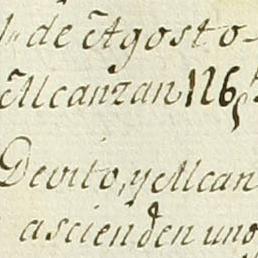 de Agosto
Alcanzan 116
Devito, y Alcan
ascienden uno